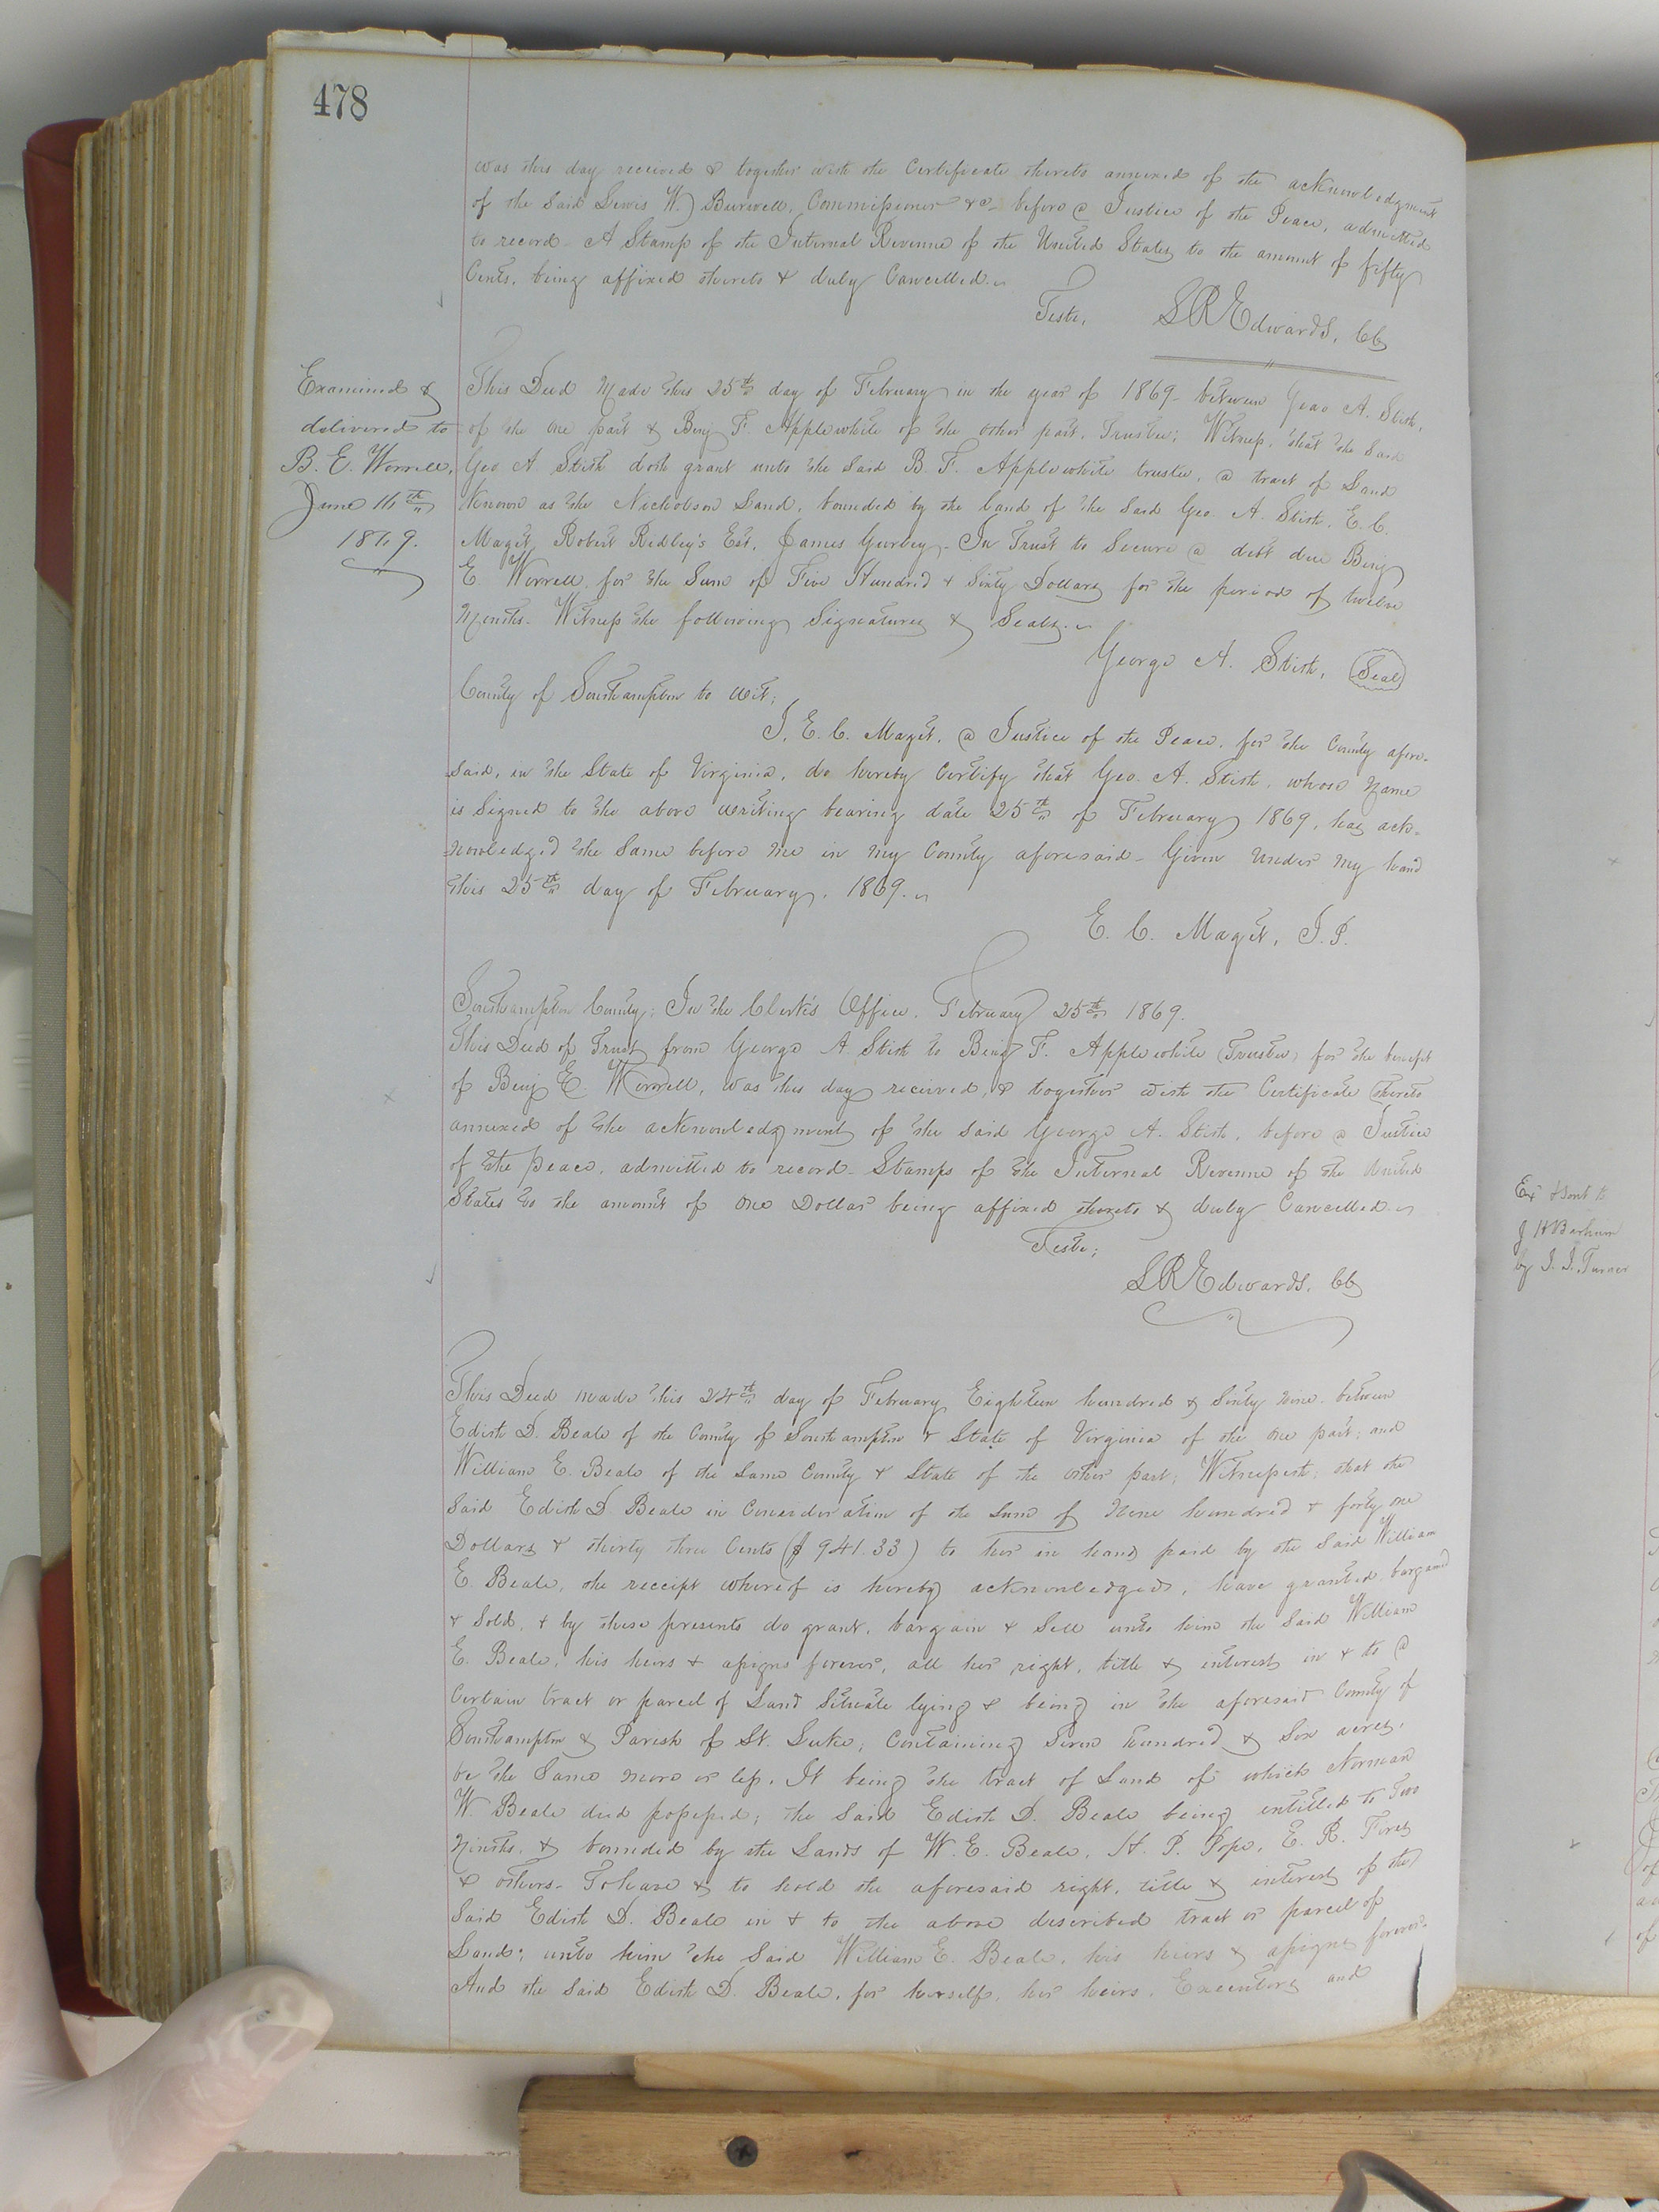 478
was this day received & together with the Certificate thereto annexed of the acknowledgment
of the said Lewis W. Burwell, Commissioner &c- before a Justice of the Peace, admitted
to record- A Stamp of the Internal Revenue of the United States, to the amount of fifty
Cents, being affixed thereto & duly Cancelled.
Teste, S R Edwards, CC
Examined &
delivered to
B. E. Worrell,
June 16th
1869.
This Deed made this 25th day of February in the year of 1869- between Geo A. Stith,
of the one part & Benj F. Applewhite of the other part, Trustee; Witness, that the Said
Geo A. Stith doth grant unto the said B. F. Applewhite trustee, a tract of Land
Known as the Nicholson Land, bounded by the land of the said Geo. A. Stith, E. C.
Maget, Robert Ridley's Est, James Gurley- In Trust to Secure a debt due Benj
E. Worrell, for the Sum of Five Hundred & Sixty Dollars for the period of twelve
Months- Witness the following Signatures & Seals.
George A. Stith, Seal
County of Southampton to wit;
I, E. C. Maget, a Justice of the Peace, for the County afore-
said, in the State of Virginia, do hereby Certify that Geo. A. Stith, whose name
is signed to the above writing bearing date 25th of February 1869, has ack-
nowledged the Same before me in my County aforesaid- Given under my hand
this 25th day of February, 1869.
E. C. Maget, J. P.
Southampton County; In the Clerk's Office. February 25th 1869.
This Deed of Trust from George A. Stith to Benj F. Applewhite (Trustee) for the benefit
of Benj E. Worrell, was this day received, & together with the Certificate thereto
annexed of the acknowledgment of the said George A. Stith, before a Justice
of the Peace, admitted to record- Stamps of the Internal Revenue of the United
States to the amount of One Dollar being affixed thereto & duly Cancelled.
Teste;
S R Edwards, CC
This Deed made this 24th day of February Eighteen hundred & Sixty nine between
Edith D. Beale of the County of Southampton & State of Virginia of the one part; and
William E. Beale of the Same County & State of the other part; Witnesseth; that the
Said Edith D. Beale in Consideration of the Sum of Nine hundred & forty one
Dollars & thirty three Cents ($ 941.33) to her in hand paid by the Said William
E. Beale, the receipt whereof is hereby acknowledged, have granted, bargained
& Sold, & by these presents do grant, bargain & Sell unto him the Said William
E. Beale, his heirs & assigns forever, all her right, title & interest in & to a
Certain tract or parcel of Land Situate lying & being in the aforesaid County of
Southampton & Parish of St. Luke, Containing Seven hundred & Six acres,
be the Same more or less. It being the tract of Land of which Norman
W. Beale died possessed; the Said Edith D. Beale being entitled to Two
Ninths, & bounded by the Lands of W. E. Beale, H. P. Pope, E. R.
& others- To have & to hold the aforesaid right, title & interest of the
Said Edith D. Beale in & to the above described tract or parcel of
Land; unto him the Said William E. Beale, his heirs & assigns forever.
And the Said Edith D. Beale, for herself, her heirs, Executors and
Ex & sent to
J H Barham
by J. J. Turner